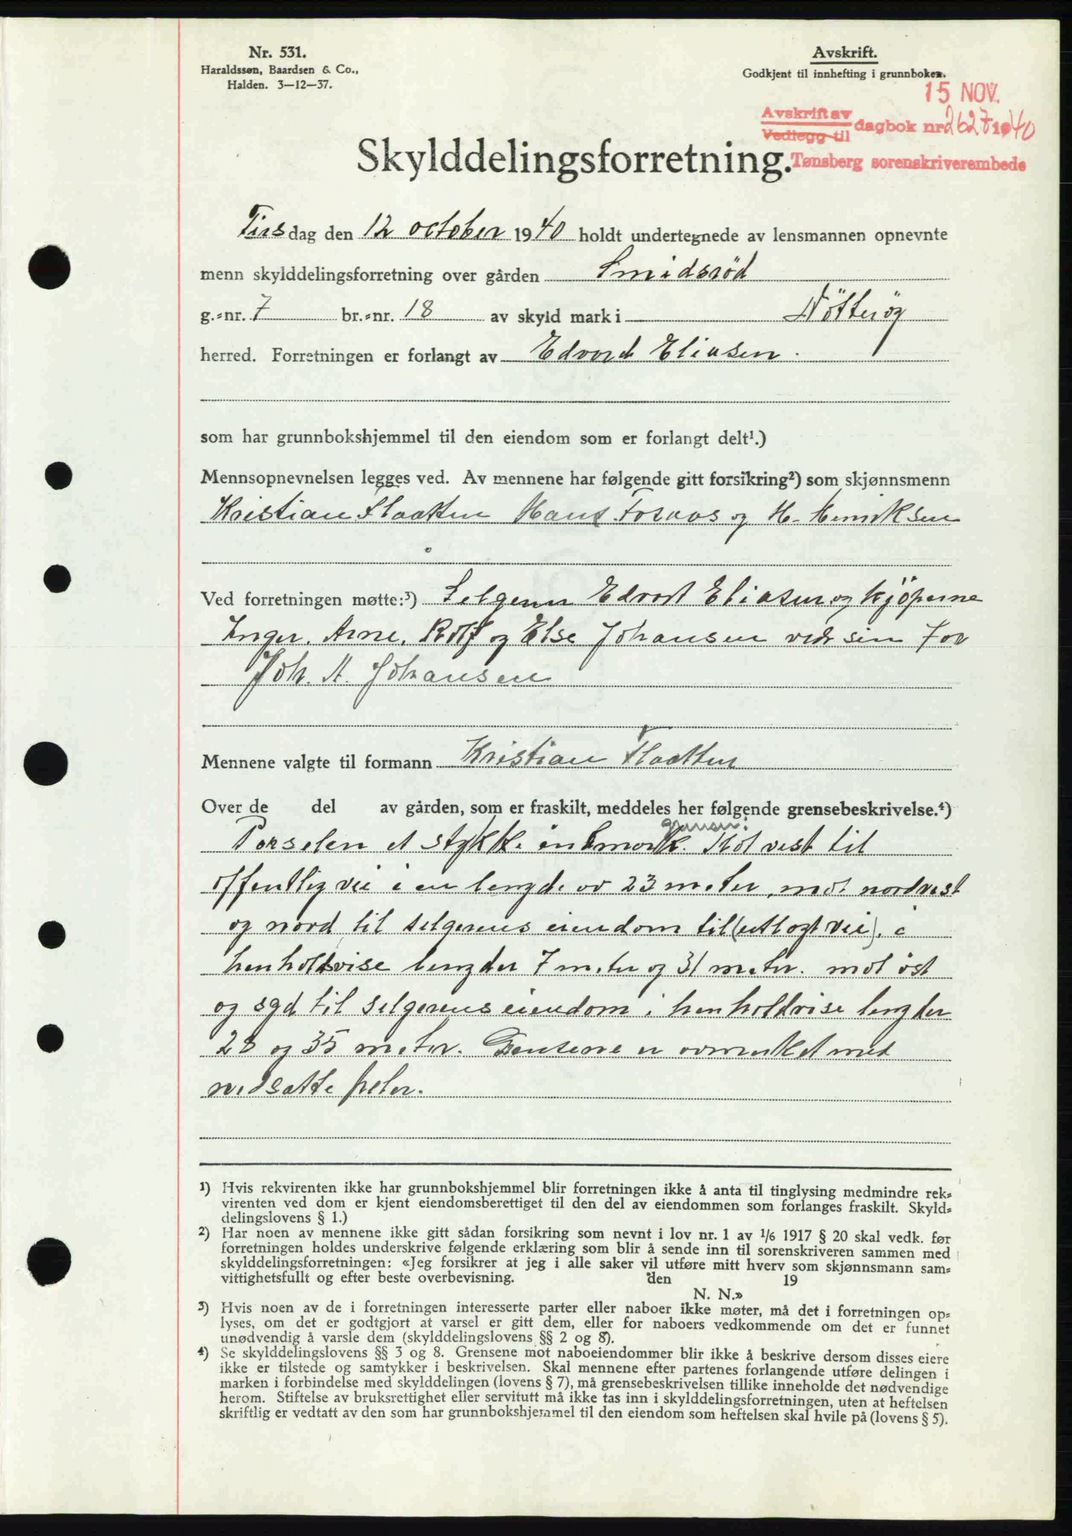 Nr. 531.
Haraldssøn, Baardsen & Co.,
Halden. 3—12—37.
Avskrift.
Godkjent til innhefting i grunnboken.
15 NOV.
Avskrift av
Vedlegg til
dagbok nr. 2627 1940
Tønsberg sorenskriverembede
Skylddelingsforretning.
Tirsdag den 12 october 1940 holdt undertegnede av lensmannen opnevnte
menn skylddelingsforretning over gården Smidsröd
g.-nr. 7 br.-nr. 18 av skyld mark i Nötteröy
herred. Forretningen er forlangt av Edvard Eliasen.
som har grunnbokshjemmel til den eiendom som er forlangt delt¹.)
Mennsopnevnelsen legges ved. Av mennene har følgende gitt forsikring²) som skjønnsmenn
Kristian Flaatten Hans og H. Henriksen
Ved forretningen møtte:³) Selgeren Edvard Eliasen og kjöperne
Inger, Arne, Rolf og Else Johansen ved sin Far
Joh. A. Johansen
Mennene valgte til formann Kristian Flaatten
Over de del av gården, som er fraskilt, meddeles her følgende grensebeskrivelse.⁴)
Parselen et stykke Mot vest til
offentlig vei i en lengde av 23 meter, mot nordvest
og nord til selgerens eiendom til (utlagt vei), i
henholdvise lengder 7 meter og 31 meter. mot öst
og syd til selgerens eiendom i henholdvise lengder
28 og 35 meter. Grensene er avmerket med
nedsatte peler.
¹) Hvis rekvirenten ikke har grunnbokshjemmel blir forretningen ikke å anta til tinglysing medmindre rek-
virenten ved dom er kjent eiendomsberettiget til den del av eiendommen som forlanges fraskilt. Skyld-
delingslovens § 1.)
²) Har noen av mennene ikke gitt sådan forsikring som nevnt i lov nr. 1 av 1/6 1917 § 20 skal vedk. før
forretningen holdes underskrive følgende erklæring som blir å sende inn til sorenskriveren sammen med
skylddelingsforretningen: «Jeg forsikrer at jeg i alle saker vil utføre mitt hverv som skjønnsmann sam-
vittighetsfullt og efter beste overbevisning. den 19
N. N.»
³) Hvis noen av de i forretningen interesserte parter eller naboer ikke møter, må det i forretningen op-
lyses, om det er godtgjort at varsel er gitt dem, eller for naboers vedkommende om det er funnet
unødvendig å varsle dem (skylddelingslovens §§ 2 og 8).
⁴) Se skylddelingslovens §§ 3 og 8. Grensene mot naboeiendommer blir ikke å beskrive dersom disses eiere
ikke er tilstede og samtykker i beskrivelsen. Skal mennene efter partenes forlangende utføre delingen i
marken i forbindelse med skylddelingen (lovens § 7), må grensebeskrivelsen tillike inneholde det nødvendige
herom. Stiftelse av bruksrettighet eller servitutt må ikke tas inn i skylddelingsforretningen, uten at heftelsen
skriftlig er vedtatt av den som har grunnbokshjemmel til den eiendom som heftelsen skal hvile på (lovens § 5).